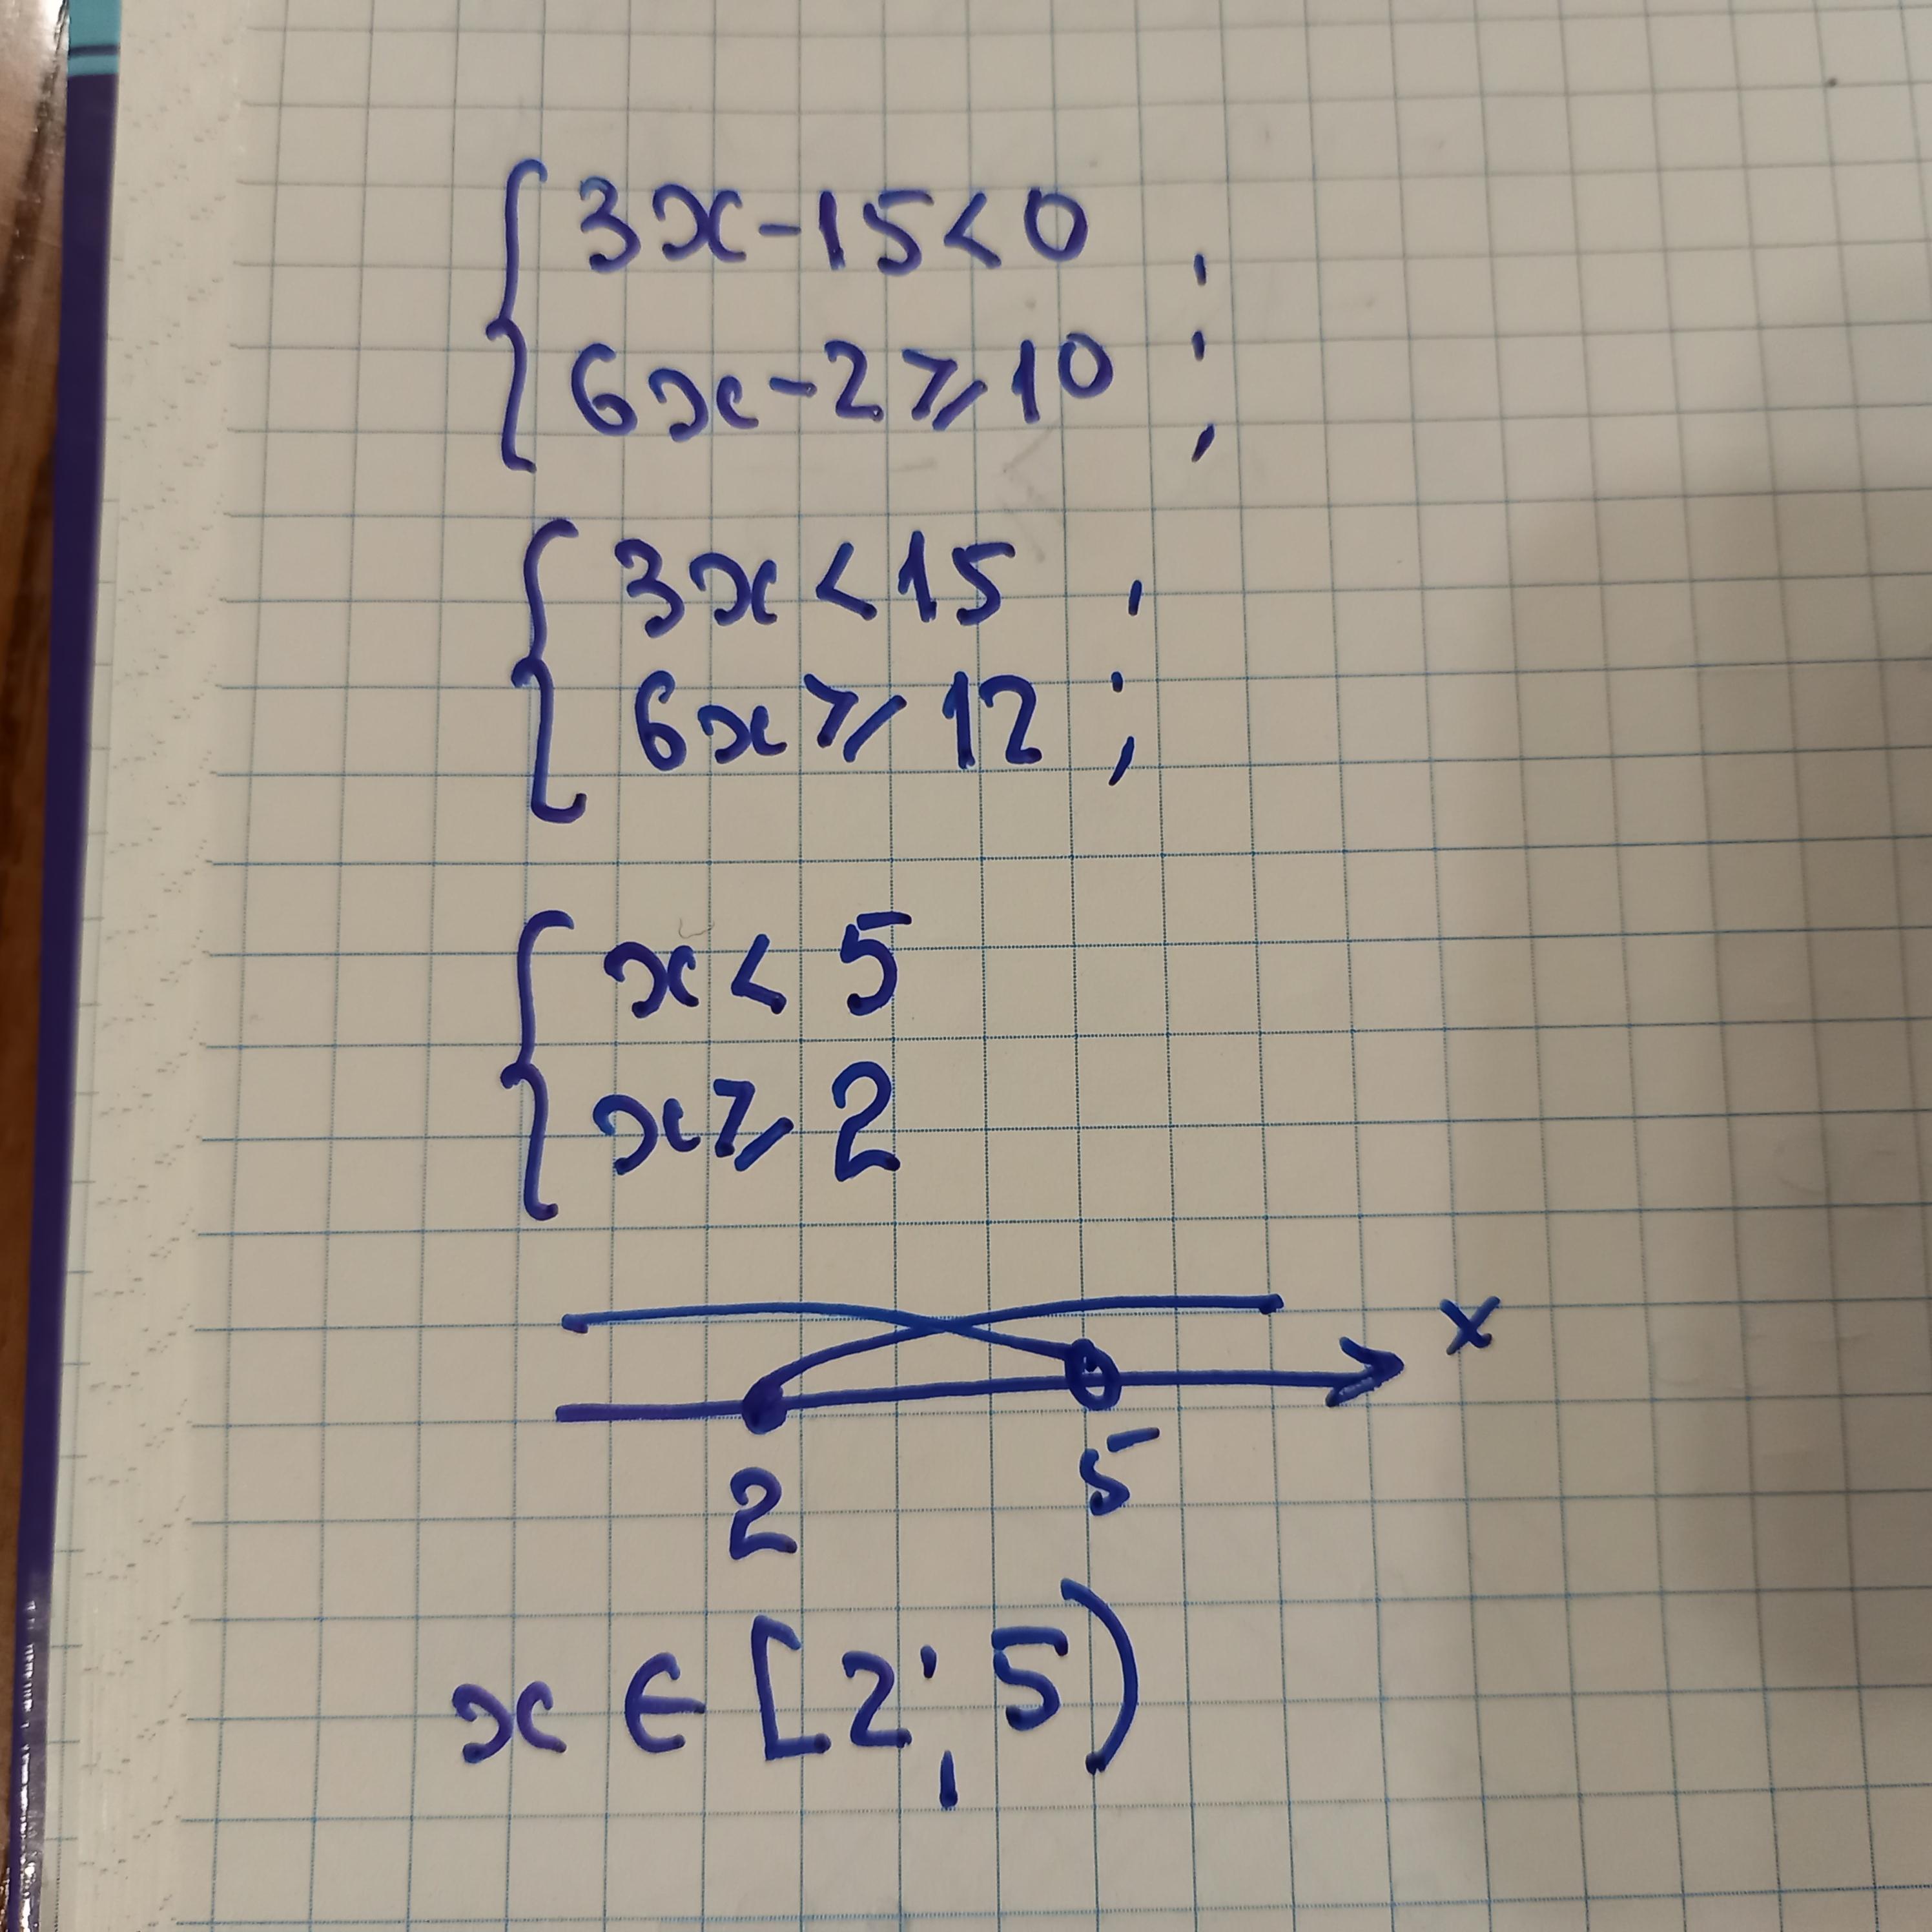 3x-15<0 ,
6x-2⩾10 ;
3x<15 ,
6x⩾12 ;
x<5
x⩾2
x
2 5
x∈[2;5)